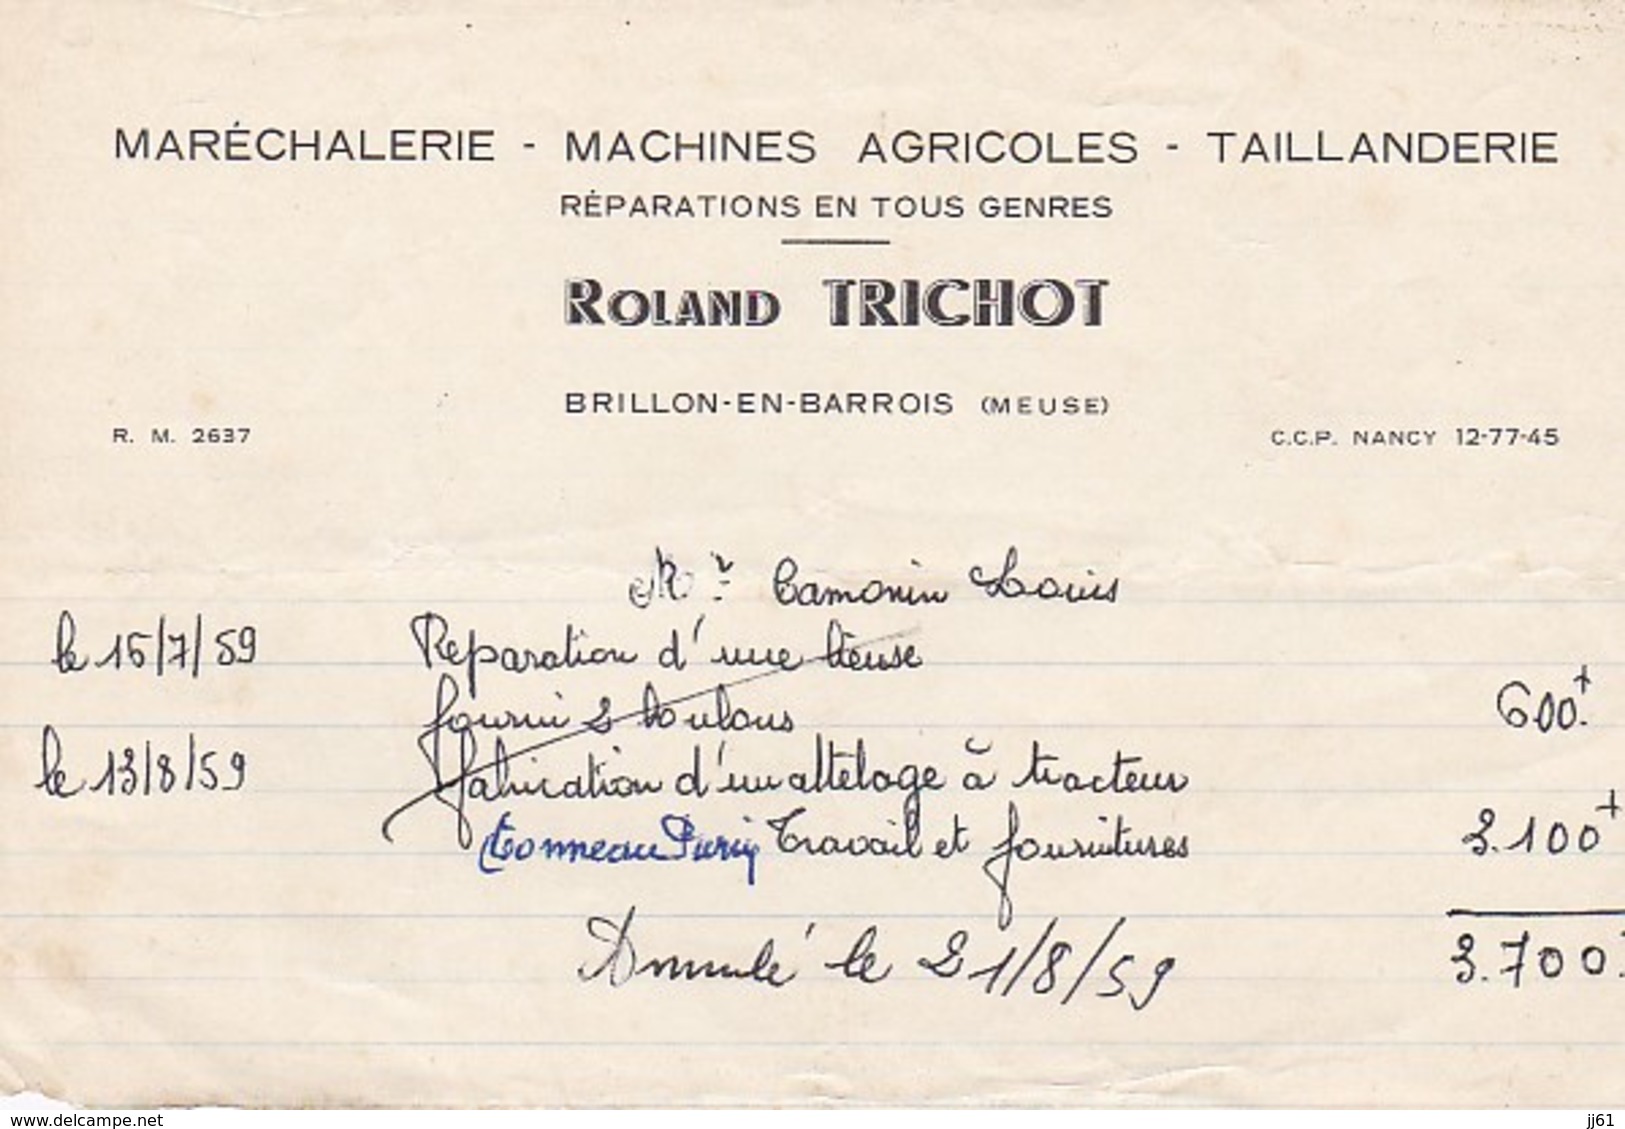 MARÉCHALERIE - MACHINES AGRICOLES - TAILLANDERIE
RÉPARATIONS EN TOUS GENRES
ROLAND TRICHOT
BRILLON-EN-BARROIS (MEUSE)
R. M. 2637
C.C.P. NANCY 12-77-45
Mr Camonin Louis
le 15/7/59 Reparation d'une lieuse
fourni 2 boulons 600.
le 13/8/59 fabrication d'un attelage à tracteur
(tonneau Purin Travail et fournitures 3.100
Annulé le 21/8/59 3.700.
www.delcampe.net
jj61